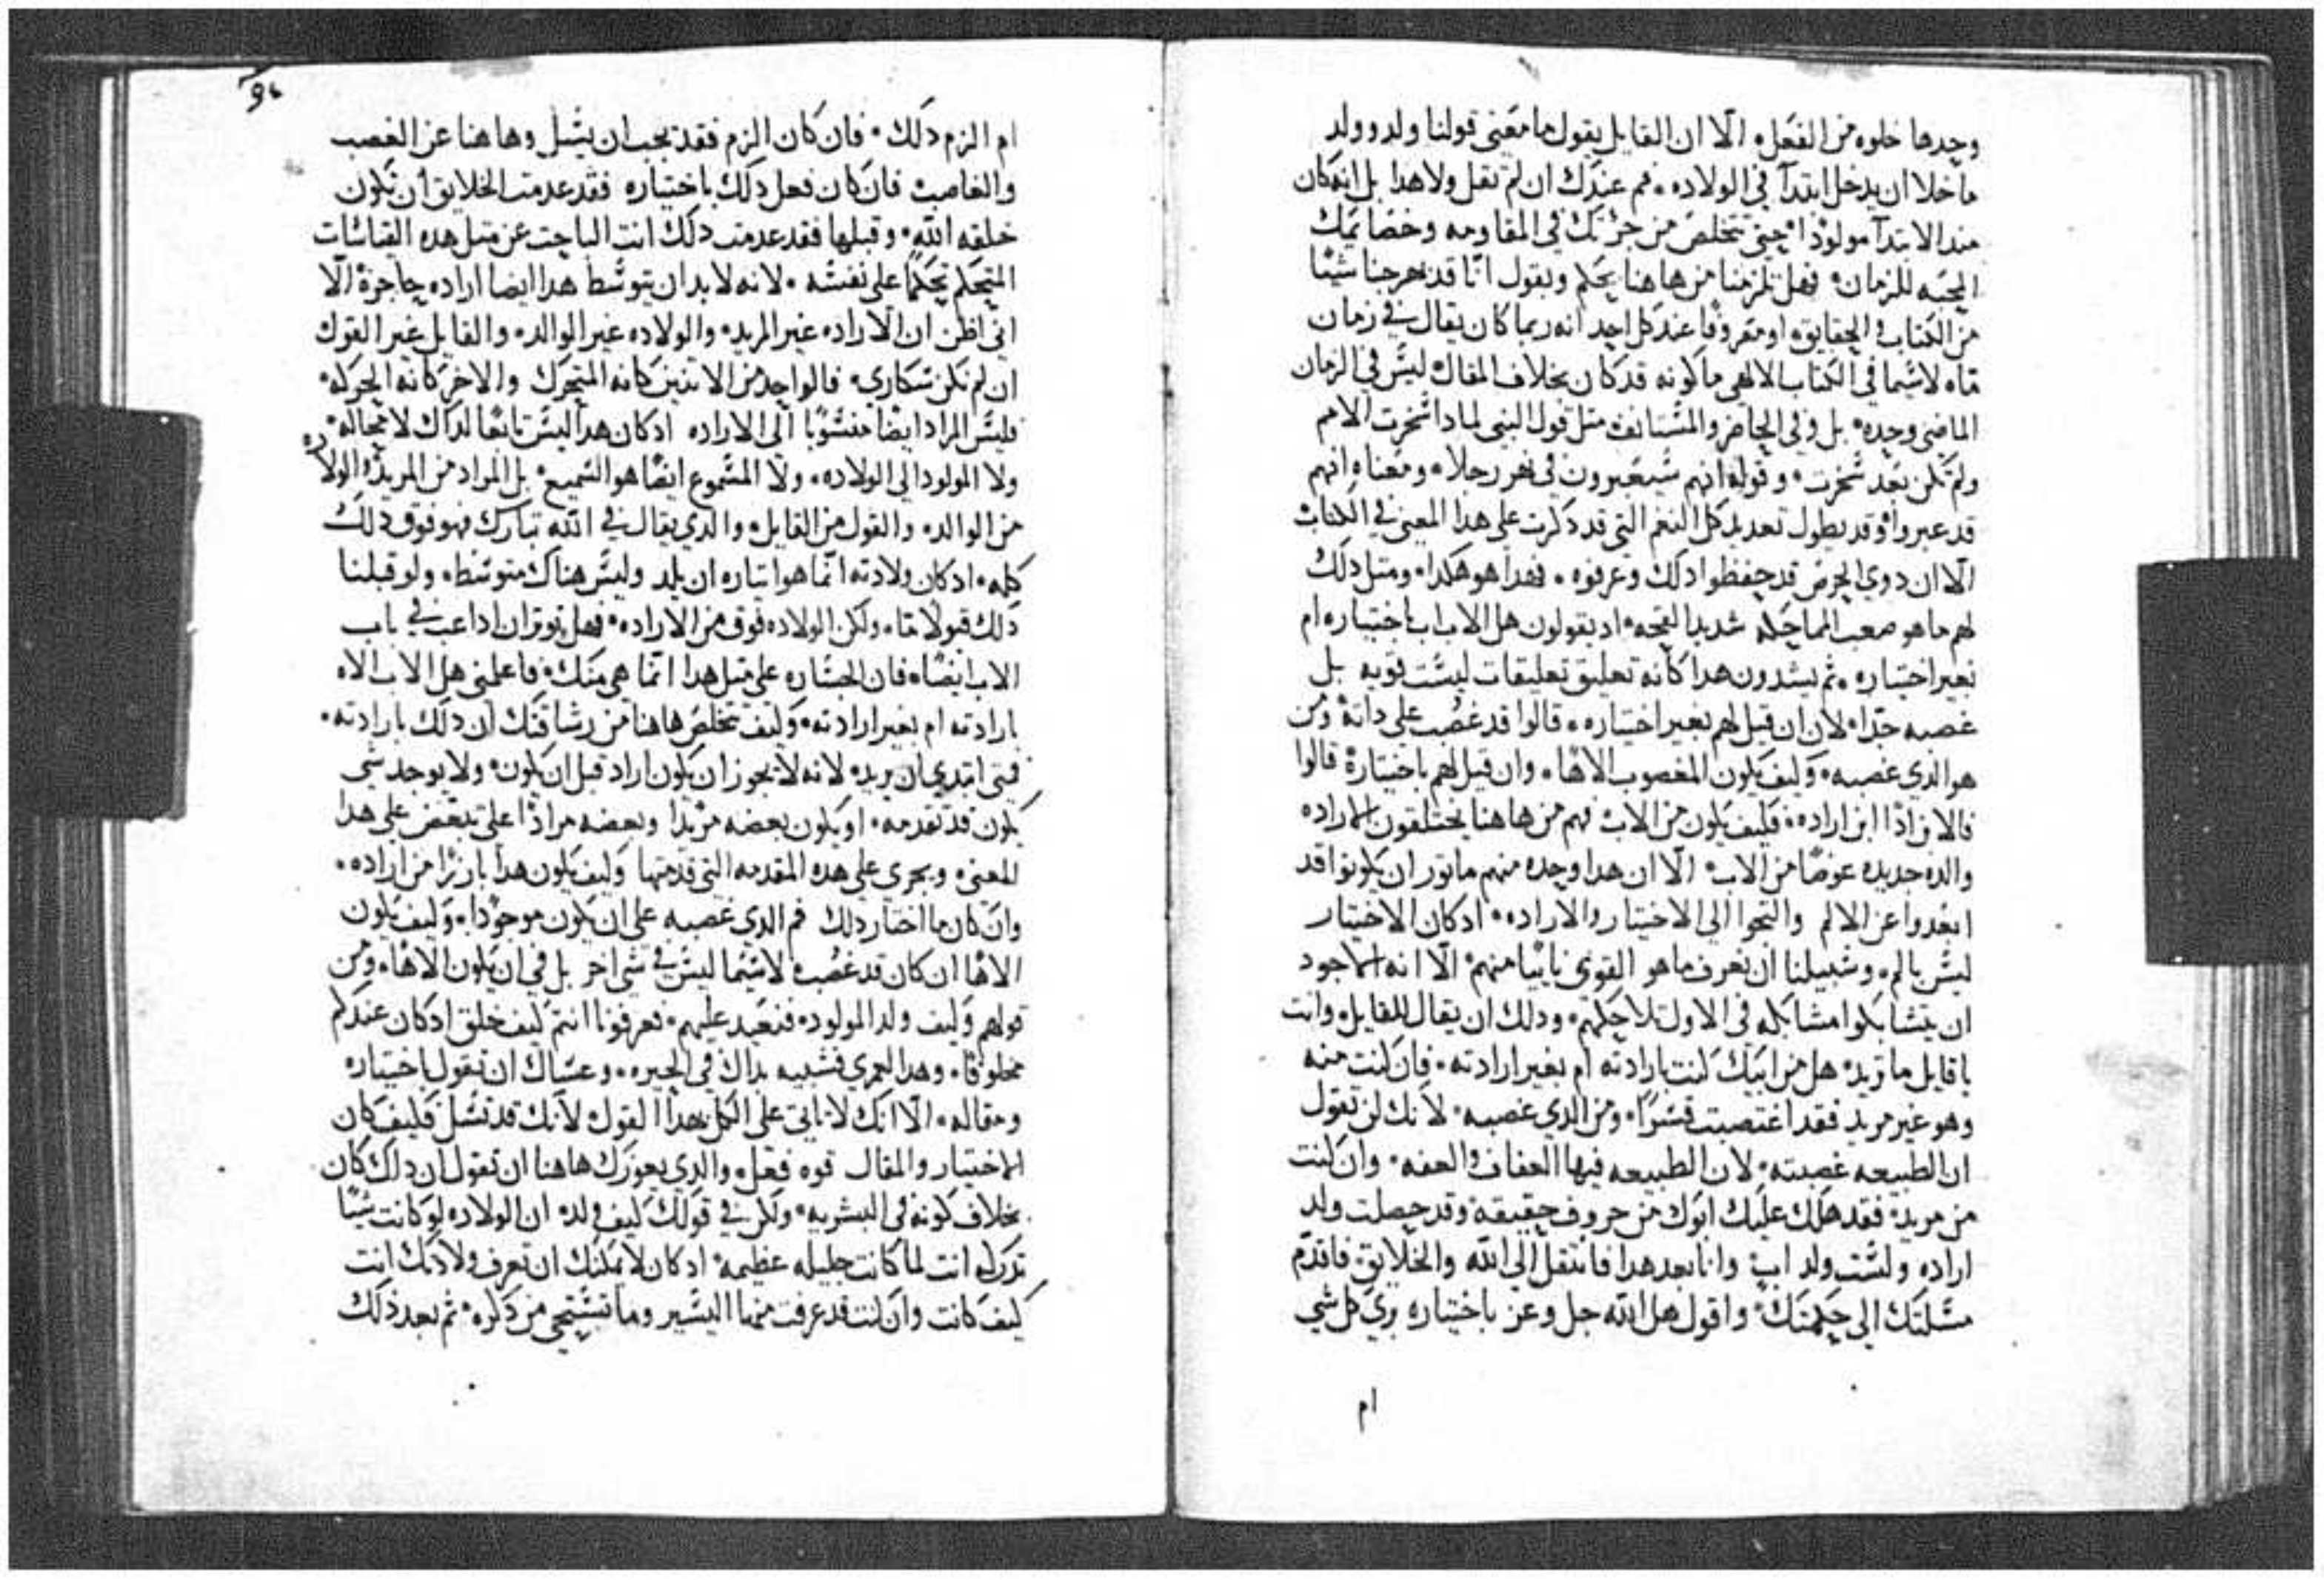 وحدها خلوه من الفعل الا ان القايل يقول ما معنى قولنا ولد وولد
ما خلا ان يدخل ابتدآ في الولاده فم عندك ان لم نقل ولا هدا بل انه كان
مند الابتدآ مولودا حتى تتخلص من حرتك في المقاومه وخصامك
المحبه للزمان فهل تلزمنا من هاهنا بحكم ويقول انا قد حرجنا شيا
من الكتاب والحقايق او معروفا عند كل احد انه ربما كان يقال في زمان
ما لا سيما في الكتاب الالاهي ما كونه قد كان بخلاف المقال ليس في الزمان
الماضي وحده بل وفي الحاضر والمستانف مثل قول النبي لمادا سخرت الامم
ولم تكن بعد سخرت وقوله انهم سيعبرون في نهر رجلا ومعناه انهم
قد عبروا وقد يطول تعديد كل النغم التي قد دكرت على هدا المعنى في الكتاب
الا ان دوي الحرص قد حفظوا دلك وعرفوه فهدا هو هكدا ومثل دلك
لهم ما هو صعب المماحكه شديد القحه اد يقولون هل الاب باختياره ام
بغير اختياره ثم يشدون هدا كانه تعليق تعليقات ليست قويه بل
غصبه جدا لان ان قيل لهم بغير اختياره قالوا قد غصب على داته ومن
هو الدي غصبه وكيف يكون المغصوب الاها وان قيل لهم باختياره قالوا
فالابن ادا ابن اراده فكيف يكون من الاب فهم من هاهنا يختلقون الاراده
والده جديده عوضا من الاب الا ان هدا وحده منهم ماتور ان يكونوا قد
ابعدوا عن الالم والتجوا الى الاختيار والاراده ادكان الاختيار
ليس بالم وسبيلنا ان نعرف ما هو القوى ثانيا منهم الا انه الاجود
ان يتشابكوا مشابكه في الاول لاحكهم ودلك ان يقال للقايل وانت
يا قايل ما تريد هل من ابيك كنت بارادته ام بغير ارادته فان كنت منه
وهو غير مريد فقد اغتصبت قسرا ومن الدي غصبه لانك لن تقول
ان الطبيعه غصبته لان الطبيعه فيها العفاف والعفه وان كنت
من مريد فقد هلك عليك ابوك من حروف حقيقه وقد حصلت ولد
اراده ولست ولد اب وانا بعد هدا فانتقل الى الله والخلايق فاقدم
مسلتك الى حكمتك واقول هل الله جل وعز باختياره بري كل شي
ام
ام الزم دلك فان كان الزم فقد يجب ان يسل وهاهنا عن الغصب
والغاصب فان كان فعل دلك باختياره فقد عدمت الخلايق ان تكون
خلقه الله وقبلها فقد عدمت دلك انت الباحت عن مثل هده القياسات
المتحكم تحكما على نفسه لانه لابد ان يتوسط هدا ايضا اراده حاجزة الا
اني اظن ان الاراده غير المريد والولاده غير الوالد والقايل غير القول
ان لم نكن سكارى فالواحد من الاتنين كانه المتحرك والاخر كانه الحركه
فليس المراد ايضا منسوبا الى الاراده ادكان هدا ليس تابعا لداك لا محاله
ولا المولود الى الولاده ولا المسموع ايضا هو السميع بل المراد من المريد والولاده
من الوالد والقول من القايل والدي يقال في الله تبارك فهو فوق دلك
كله ادكان ولادته انما هو ايتاره ان يلد وليس هناك متوسط ولو قبلنا
دلك قبولا تاما ولكن الولاده فوق من الاراده فهل توتر ان اداعب في باب
الاب ايضا فان الجساره على مثل هدا انما هي منك فاعلمني هل الاب الاه
بارادته ام بغير ارادته وكيف تتخلص هاهنا من رشاقتك ان دلك بارادته
فمتى ابتدي ان يريد لانه لا يجوز ان يكون اراد قبل ان يكون ولا يوجد شي
يكون قد تقدمه او يكون بعضه مريدا وبعضه مرادا على تبعض على هدا
المعنى ويجري على هده المقدمه التي قدمتها وكيف يكون هدا بارزا من اراده
وان كان ما اختار دلك فم الدي غصبه على ان يكون موجودا وكيف يكون
الاها ان كان قد غصب لا سيما ليس في شي اخر بل في ان يكون الاها ومن
قولهم وكيف ولد المولود فنعيد عليهم تعرفونا انتم كيف خلق ادكان عندكم
مخلوقا وهدا لعمري فشبيه بداك في الحيره وعساك ان تقول باختياره
ومقاله الا انك لا تاتي على الكل بهدا القول لانك قد تسل فكيف كان
الاختيار والمقال قوه فعل والدي يعوزك هاهنا ان تقول ان دلك كان
بخلاف كونه في البشريه ولكن في قولك كيف ولد ان الولاده لو كانت شيا
تدركه انت لما كانت جليله عظيمه ادكان لا يمكنك ان تعرف ولادتك انت
كيف كانت وان كنت قد عرفت منها اليسير وما تستحي من دكره ثم بعد دلك